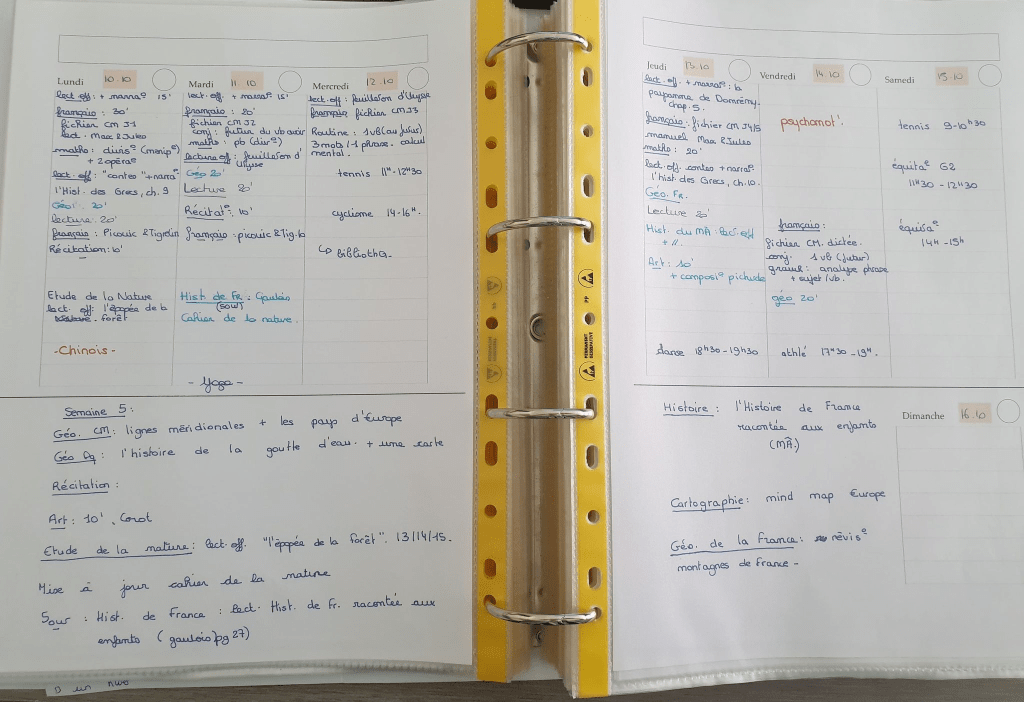 Lundi 10.10
lect. off : + narra° 15'
français : 30'
fichier CM J1
lect. Max & Jules
maths : divis° (manip°)
+ 2 opéra°
lect. off : "contes" + narra°
l'Hist. des Grecs, ch. 9
Géo : 20'
lecture : 20'
français : Picouic & Tigrelin
Récitation : 10'
Etude de la Nature
lect. off : l'épopée de la
forêt
-Chinois-
Mardi 11.10
lect. off : + narra° 15'
français : 20
fichier CM J2
conj : future du vb avoir
maths : pb (div°)
lecture off : feuilleton d'
Ulysse
Géo 20'
Lecture 20'
Récitat° : 10'
français : picouic & Tig. 10
Hist de Fr : Gaulois
(sour)
Cahier de la nature.
- Yoga -
Mercredi 12.10
lect. off : feuilleton d'Ulysse
français fichier CM J3
Routine : 1 vb (au futur)
3 mob / 1 phrase - calcul
mental.
tennis 11H - 12H30
cyclisme 14-16H.
↳ Bibliothq.
Semaine 5 :
Géo. CM : lignes méridionales + les pays d'Europe
Géo Pq : l'histoire de la goutte d'eau. + une carte
Récitation :
Art : 10' . Corot
Etude de la nature : lect. off. "l'épopée de la forêt". 13/14/15.
Mise à jour cahier de la nature
Sour : Hist. de France : lect. Hist. de Fr. racontée aux
enfants (gaulois pg 27)
Jeudi 13.10
lect. off : + narra° : la
paysanne de Domrémy
chap. 5.
français : fichier CM J4/5
manuel Max & Jules
maths : 20'
lect. off : contes + narra°
l'hist. des Grecs, ch. 10.
Géo. Fr.
Lecture 20'
Hist. du MA : lect. off
+ //.
Art : 10'
+ composi° picture
danse 18H30 - 19H30
Vendredi 14.10
psychomot'.
français :
fichier CM. dictée.
conj. 1 vb (futur)
gram : analyse phrase
+ sujet / vb.
géo 20'
athlé 17H30 - 19H.
Samedi 15.10
tennis 9-10H30
équita° G2
11H30 - 12H30
équita°
14H - 15H
Histoire : l'Histoire de France
racontée aux enfants
(MÂ.)
Cartographie : mind map Europe
Géo. de la France : révis°
montagnes de France -
Dimanche 16.10